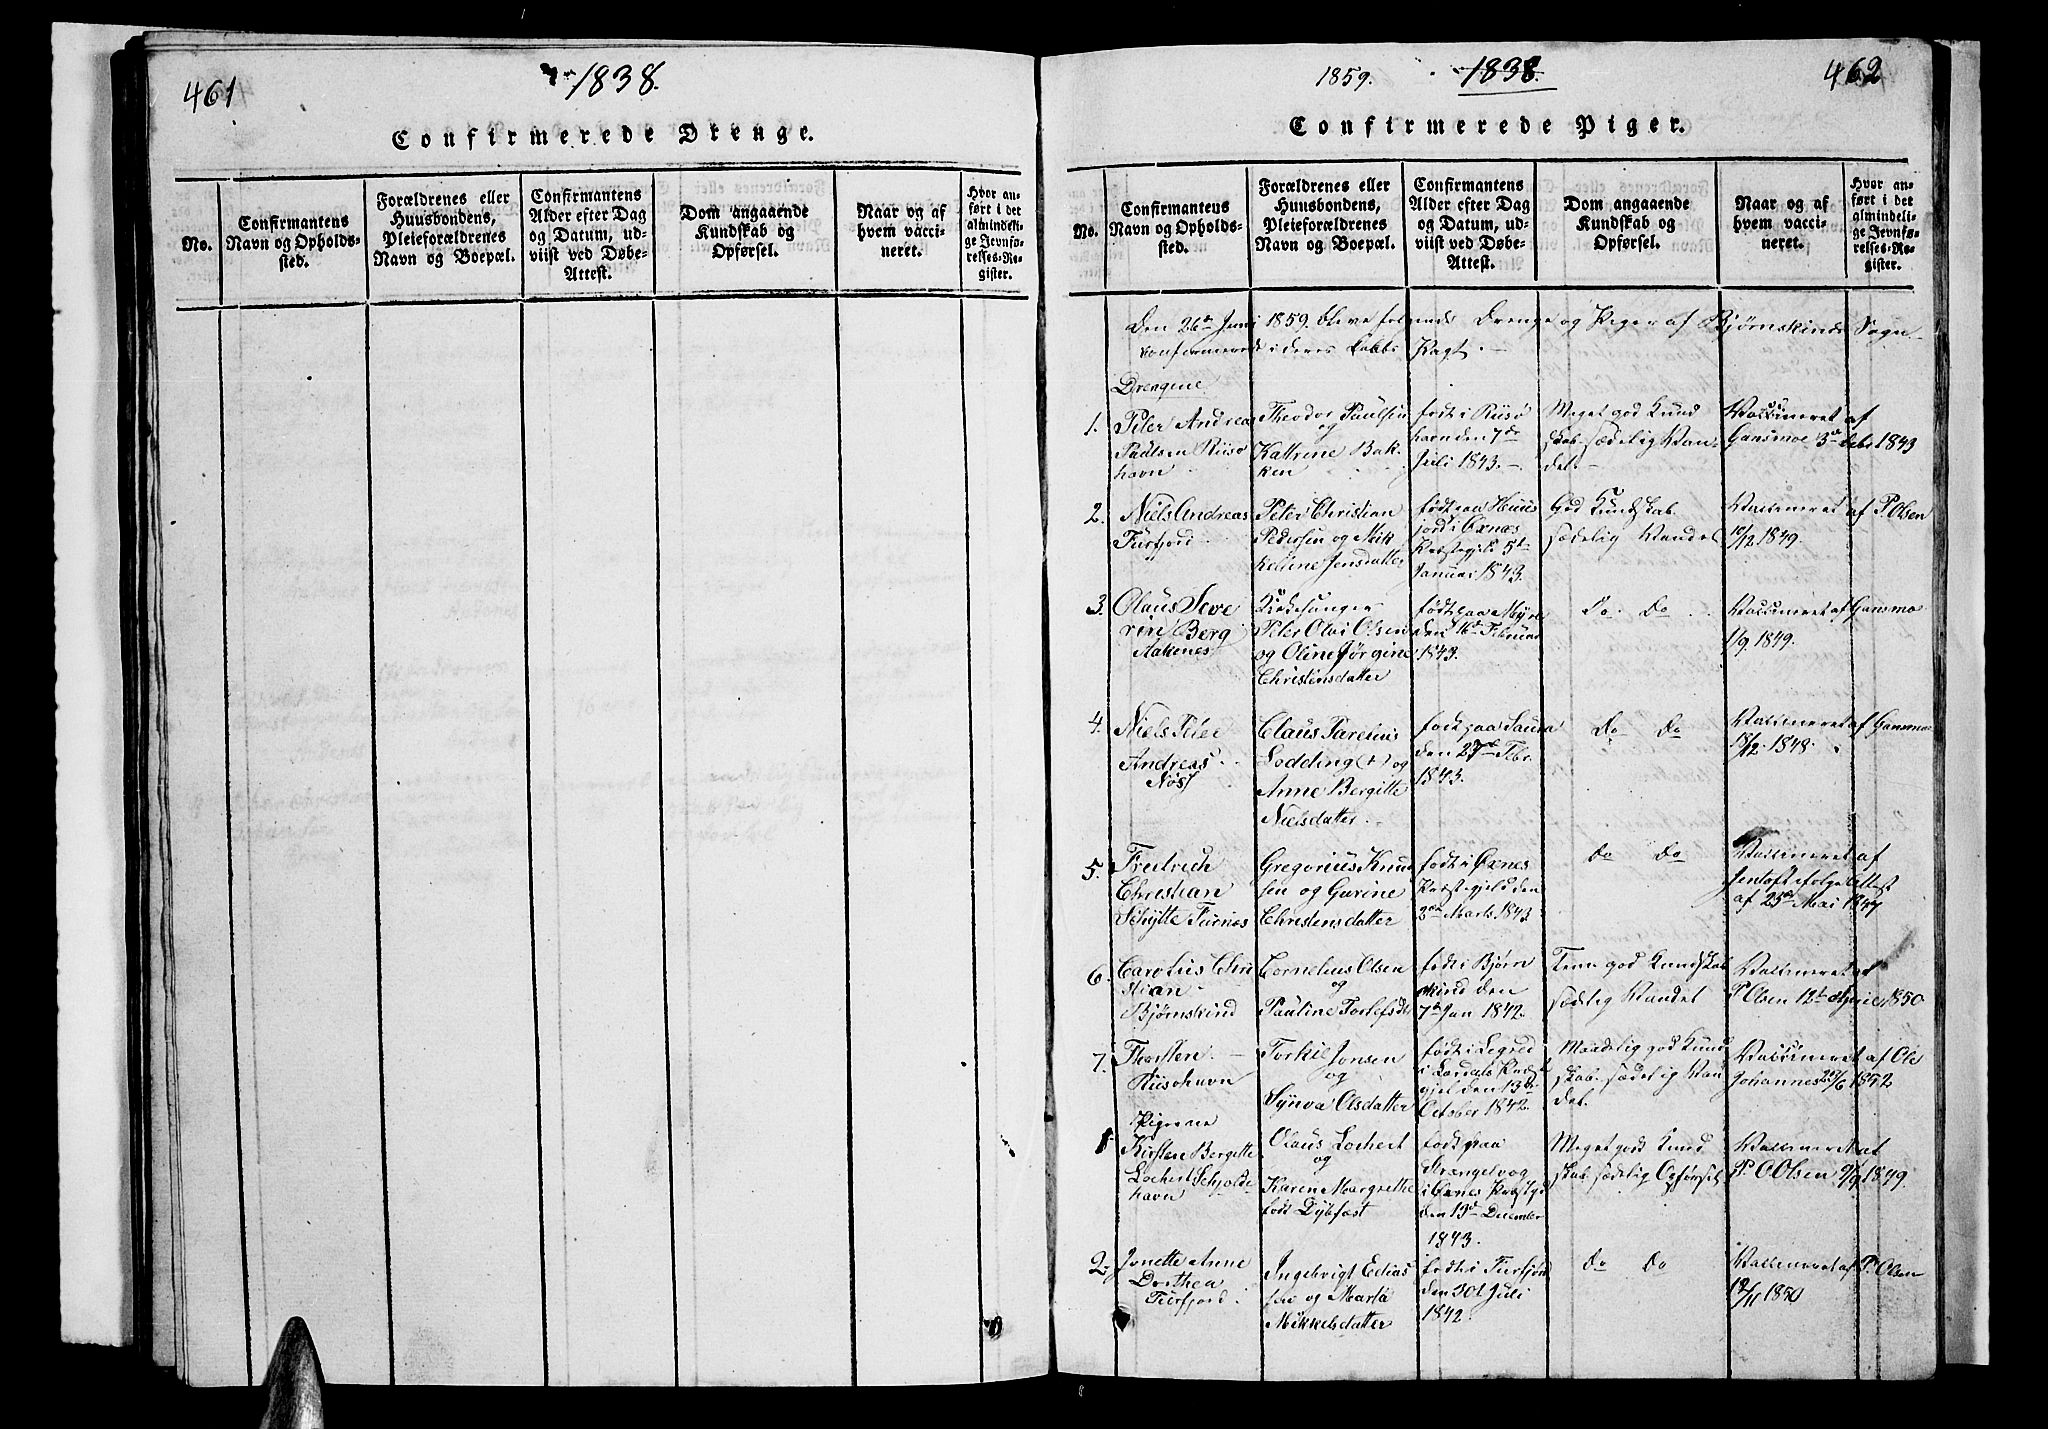 461
1838.
Confirmerede Drenge.
No.
Confirmantens
Navn og Opholds-
sted.
Forældrenes eller
Huusbondens,
Pleieforældrenes
Navn og Boepæl.
Confirmantens
Alder efter Dag
og Datum, ud-
viist ved Døbe-
Attest.
Dom angaaende
Kundskab og
Opførsel.
Naar og af
hvem vacci-
neret.
Hvor an-
ført i det
almindeli-
ge Jevnfø-
relses-Re-
gister.
1859.
1838
462
Confirmerede Piger.
No.
Confirmantens
Navn og Opholds-
sted.
Forældrenes eller
Huusbondens,
Pleieforældrenes
Navn og Boepæl.
Confirmantens
Alder efter Dag
og Datum, ud-
viist ved Døbe-
Attest.
Dom angaaende
Kundskab og
Opførsel.
Naar og af
hvem vacci-
neret.
Hvor an-
ført i det
almindeli-
ge Jevnfø-
relses-Re-
gister.
Den 26de Juni 1859 bleve følgende Drenge og Piger af Bjørnskinds Sogn
confirmerede i deres Daabs Pagt.
Drengene
1.
Peter Andreas
Paulsen Riisø
havn
Theodor Paulsen
og
Kattrine Bak-
ken
født i Riisø
havn den 7de
Juli 1843.
Meget god Kund
skab sædelig Van-
del.
Vaccineret af
Gansmoe 3de Debr 1843
2.
Niels Andreas
Fiirfjord
Peter Christian
Pedersen og Mik
keline Jensdatter
født paa
i Øxnes
Præstegjeld 5te
Januar 1843.
God Kundskab
sædelig Vandel
Vaccineret af P. Olsen
10/12 1849.
3.
Olaus Seve
rin Berg
Aakenes
Kirkesanger
Peter Olai Olsen
og Oline Jørgine
Christensdatter
født paa Myre
den 16de Februar
1843.
Do Do
Vaccineret af Gansmo
1/9 1849.
4.
Niels Peter
Andreas
Nøss
Claus Parelius
Lodding (+) og
Anne Bergitte
Nielsdatter
født paa Saura
den 27de Febr
1843.
Do Do
Vaccineret af Gansmoe
18/12 1848.
5.
Fredrich
Christian
Schytte Fiirnæs
Gregorius Knud
sen og Gurine
Christensdatter
født i Øxnes
Præstegjeld den
2den Marts 1843
Do Do
Vaccineret af
Jentoft ifølge Attest
af 25de Mai 1847
6.
Carolius Chri
stian
Bjørnskind
Cornelius Olsen
og
Pauline Torlefsdr
født i Bjørn
skind den
7de Jan 1842.
Temm. god Kundskab
sædelig Vandel
Vaccineret af
P Olsen 12te April 1850
7.
Thorsten
Riisøhavn
Torkil Jonsen
og
Synva Olsdatter
født i Legred
i Lærdals Præste
gjel den 13de
October 1842.
Maadelig god Kund
skab sædelig Van
del.
Vaccineret af Ole
Johannes 29/6 1852
Pigerne
1
Kirsten Bergitte
Lochert Schjolde
havn
Olaus Lochert
og
Karen Margrethe
født Dybfæst
født paa
Strengelvog
i Øxnes Præstgj
den 19de December
1843.
Meget god Kund
skab sædelig Opførsel
Vaccineret af
P. O Olsen 9/9 1849.
2.
Jonette Anne
Dorthea
Fiirfjord
Ingebrigt Edias
sen og Marta
Mikkelsdatter
født i Fiirfjord
den 30te Juli
1842
Do Do
Vaccineret af P. Olsen
12/11 1850